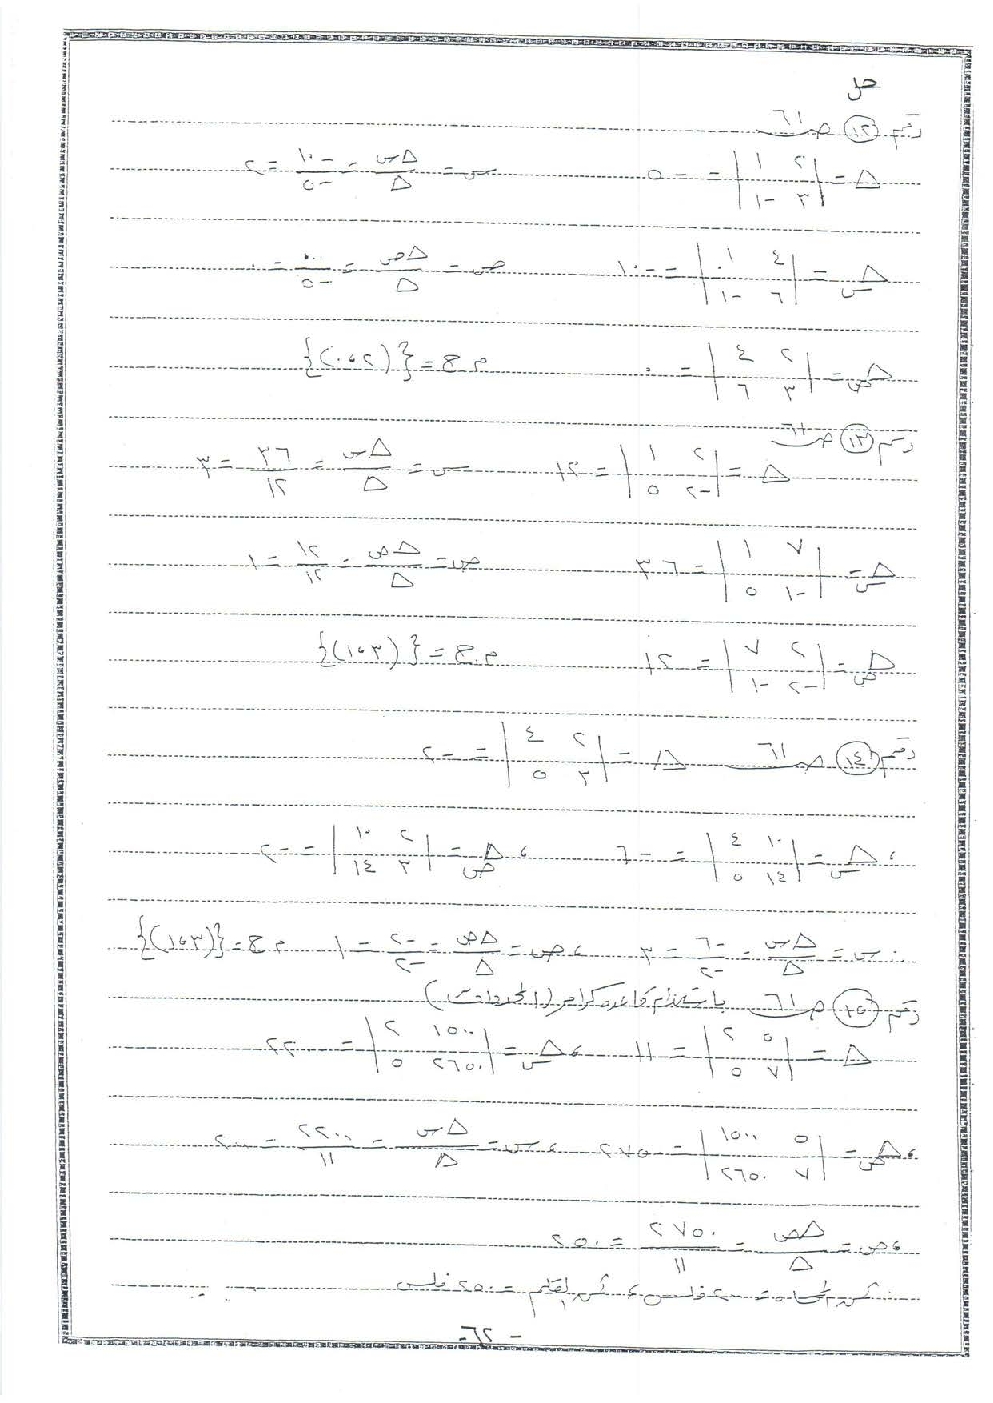 حل
رقم (١٢) ص ٦١
∆ = |٢ ١ ؛ ٣ -١| = -٥ س = ∆س/∆ = -١٠/-٥ = ٢
∆س = |٤ ١ ؛ ٦ -١| = -١٠ ص = ∆ص/∆ = ٠/-٥ = ٠
∆ص = |٢ ٤ ؛ ٣ ٦| = ٠ م.ح = {(٢، ٠)}
رقم (١٣) ص ٦١
∆ = |٢ ١ ؛ -٢ ٥| = ١٢ س = ∆س/∆ = ٣٦/١٢ = ٣
∆س = |٧ ١ ؛ -١ ٥| = ٣٦ ص = ∆ص/∆ = ١٢/١٢ = ١
∆ص = |٢ ٧ ؛ -٢ -١| = ١٢ م.ح = {(٣، ١)}
رقم (١٤) ص ٦١ ∆ = |٢ ٤ ؛ ٣ ٥| = -٢
، ∆س = |١٠ ٤ ؛ ١٤ ٥| = -٦ ، ∆ص = |٢ ١٠ ؛ ٣ ١٤| = -٢
س = ∆س/∆ = -٦/-٢ = ٣ ، ص = ∆ص/∆ = -٢/-٢ = ١ م.ح = {(٣، ١)}
رقم (١٥) ص ٦١ باستخدام قاعدة كرامر (المحددات)
∆ = |٥ ٢ ؛ ٧ ٥| = ١١ ، ∆س = |١٥٠٠ ٢ ؛ ٢٦٥٠ ٥| = ٢٢٠٠
، ∆ص = |٥ ١٥٠٠ ؛ ٧ ٢٦٥٠| = ٢٧٥٠ ، س = ∆س/∆ = ٢٢٠٠/١١ = ٢٠٠
، ص = ∆ص/∆ = ٢٧٥٠/١١ = ٢٥٠
= ٢٠٠ فلس ، القلم = ٢٥٠ فلس
-٦٢-